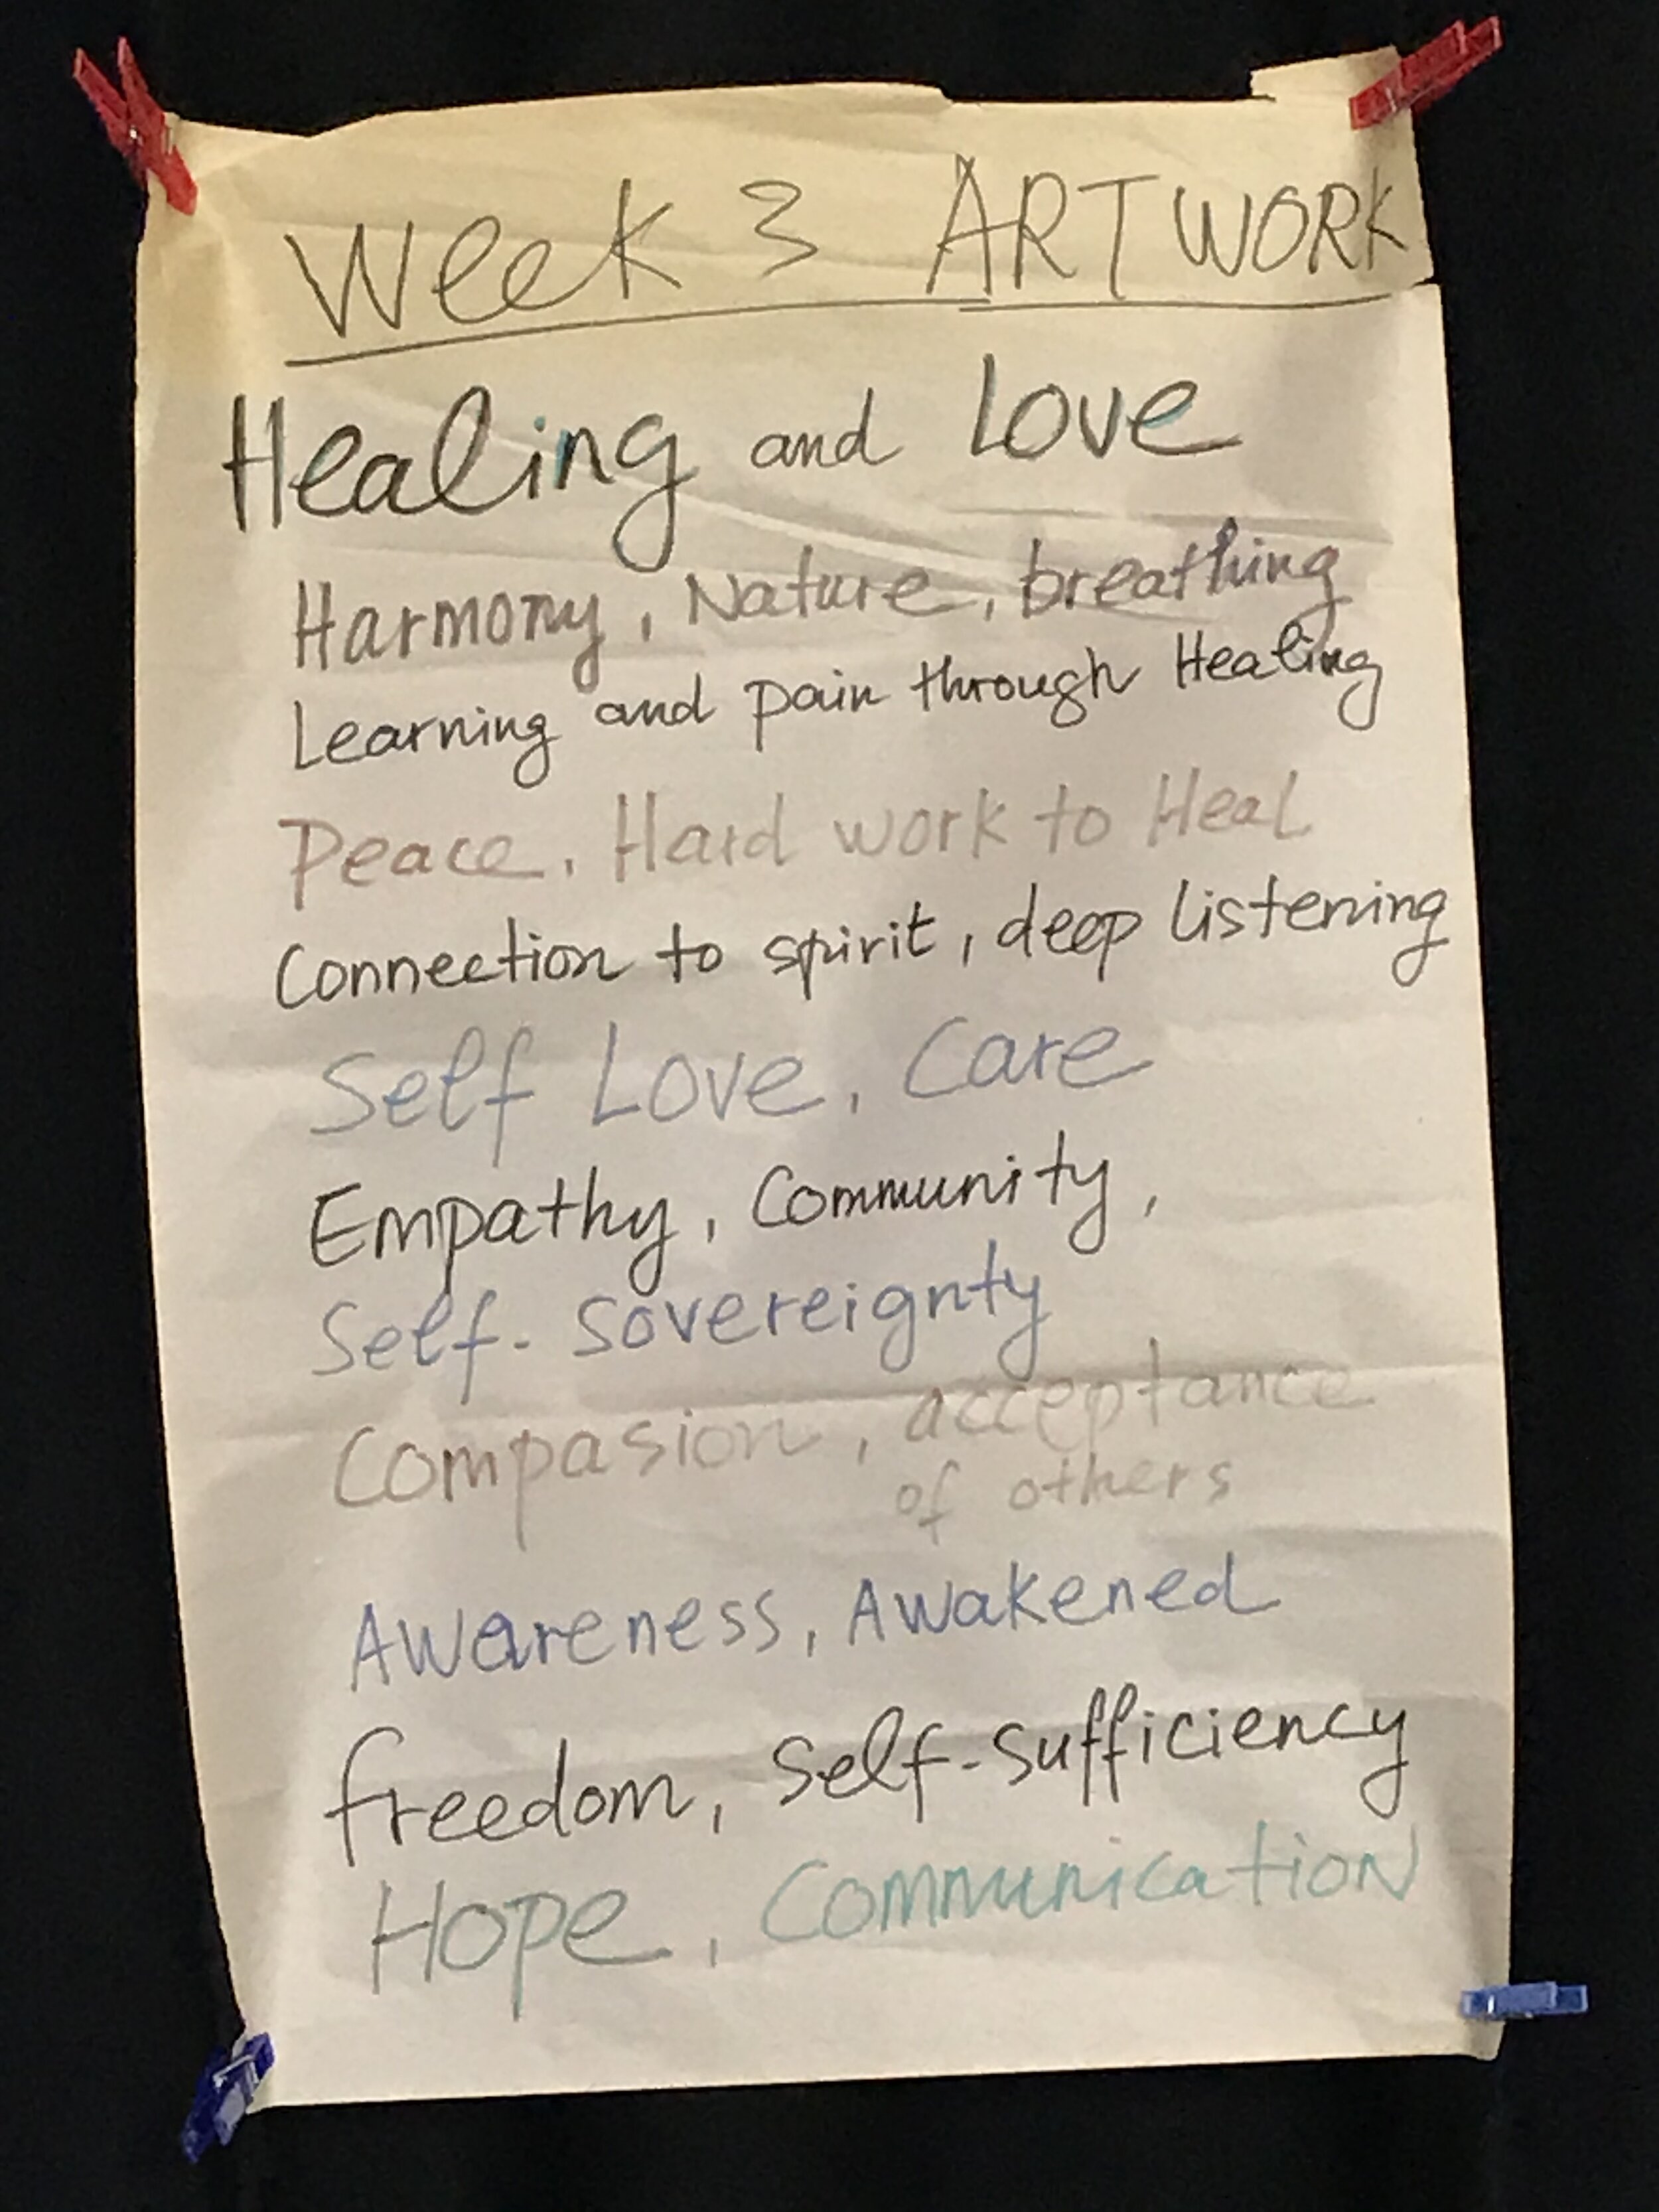 Week 3 ARTWORK
Healing and Love
Harmony, Nature, breathing
Learning and pain through Healing
Peace, Hard work to Heal
Connection to spirit, deep listening
Self Love, Care
Empathy, Community,
Self-Sovereignty
Compasion, acceptance
of others
Awareness, Awakened
freedom, Self-sufficiency
Hope, Communication